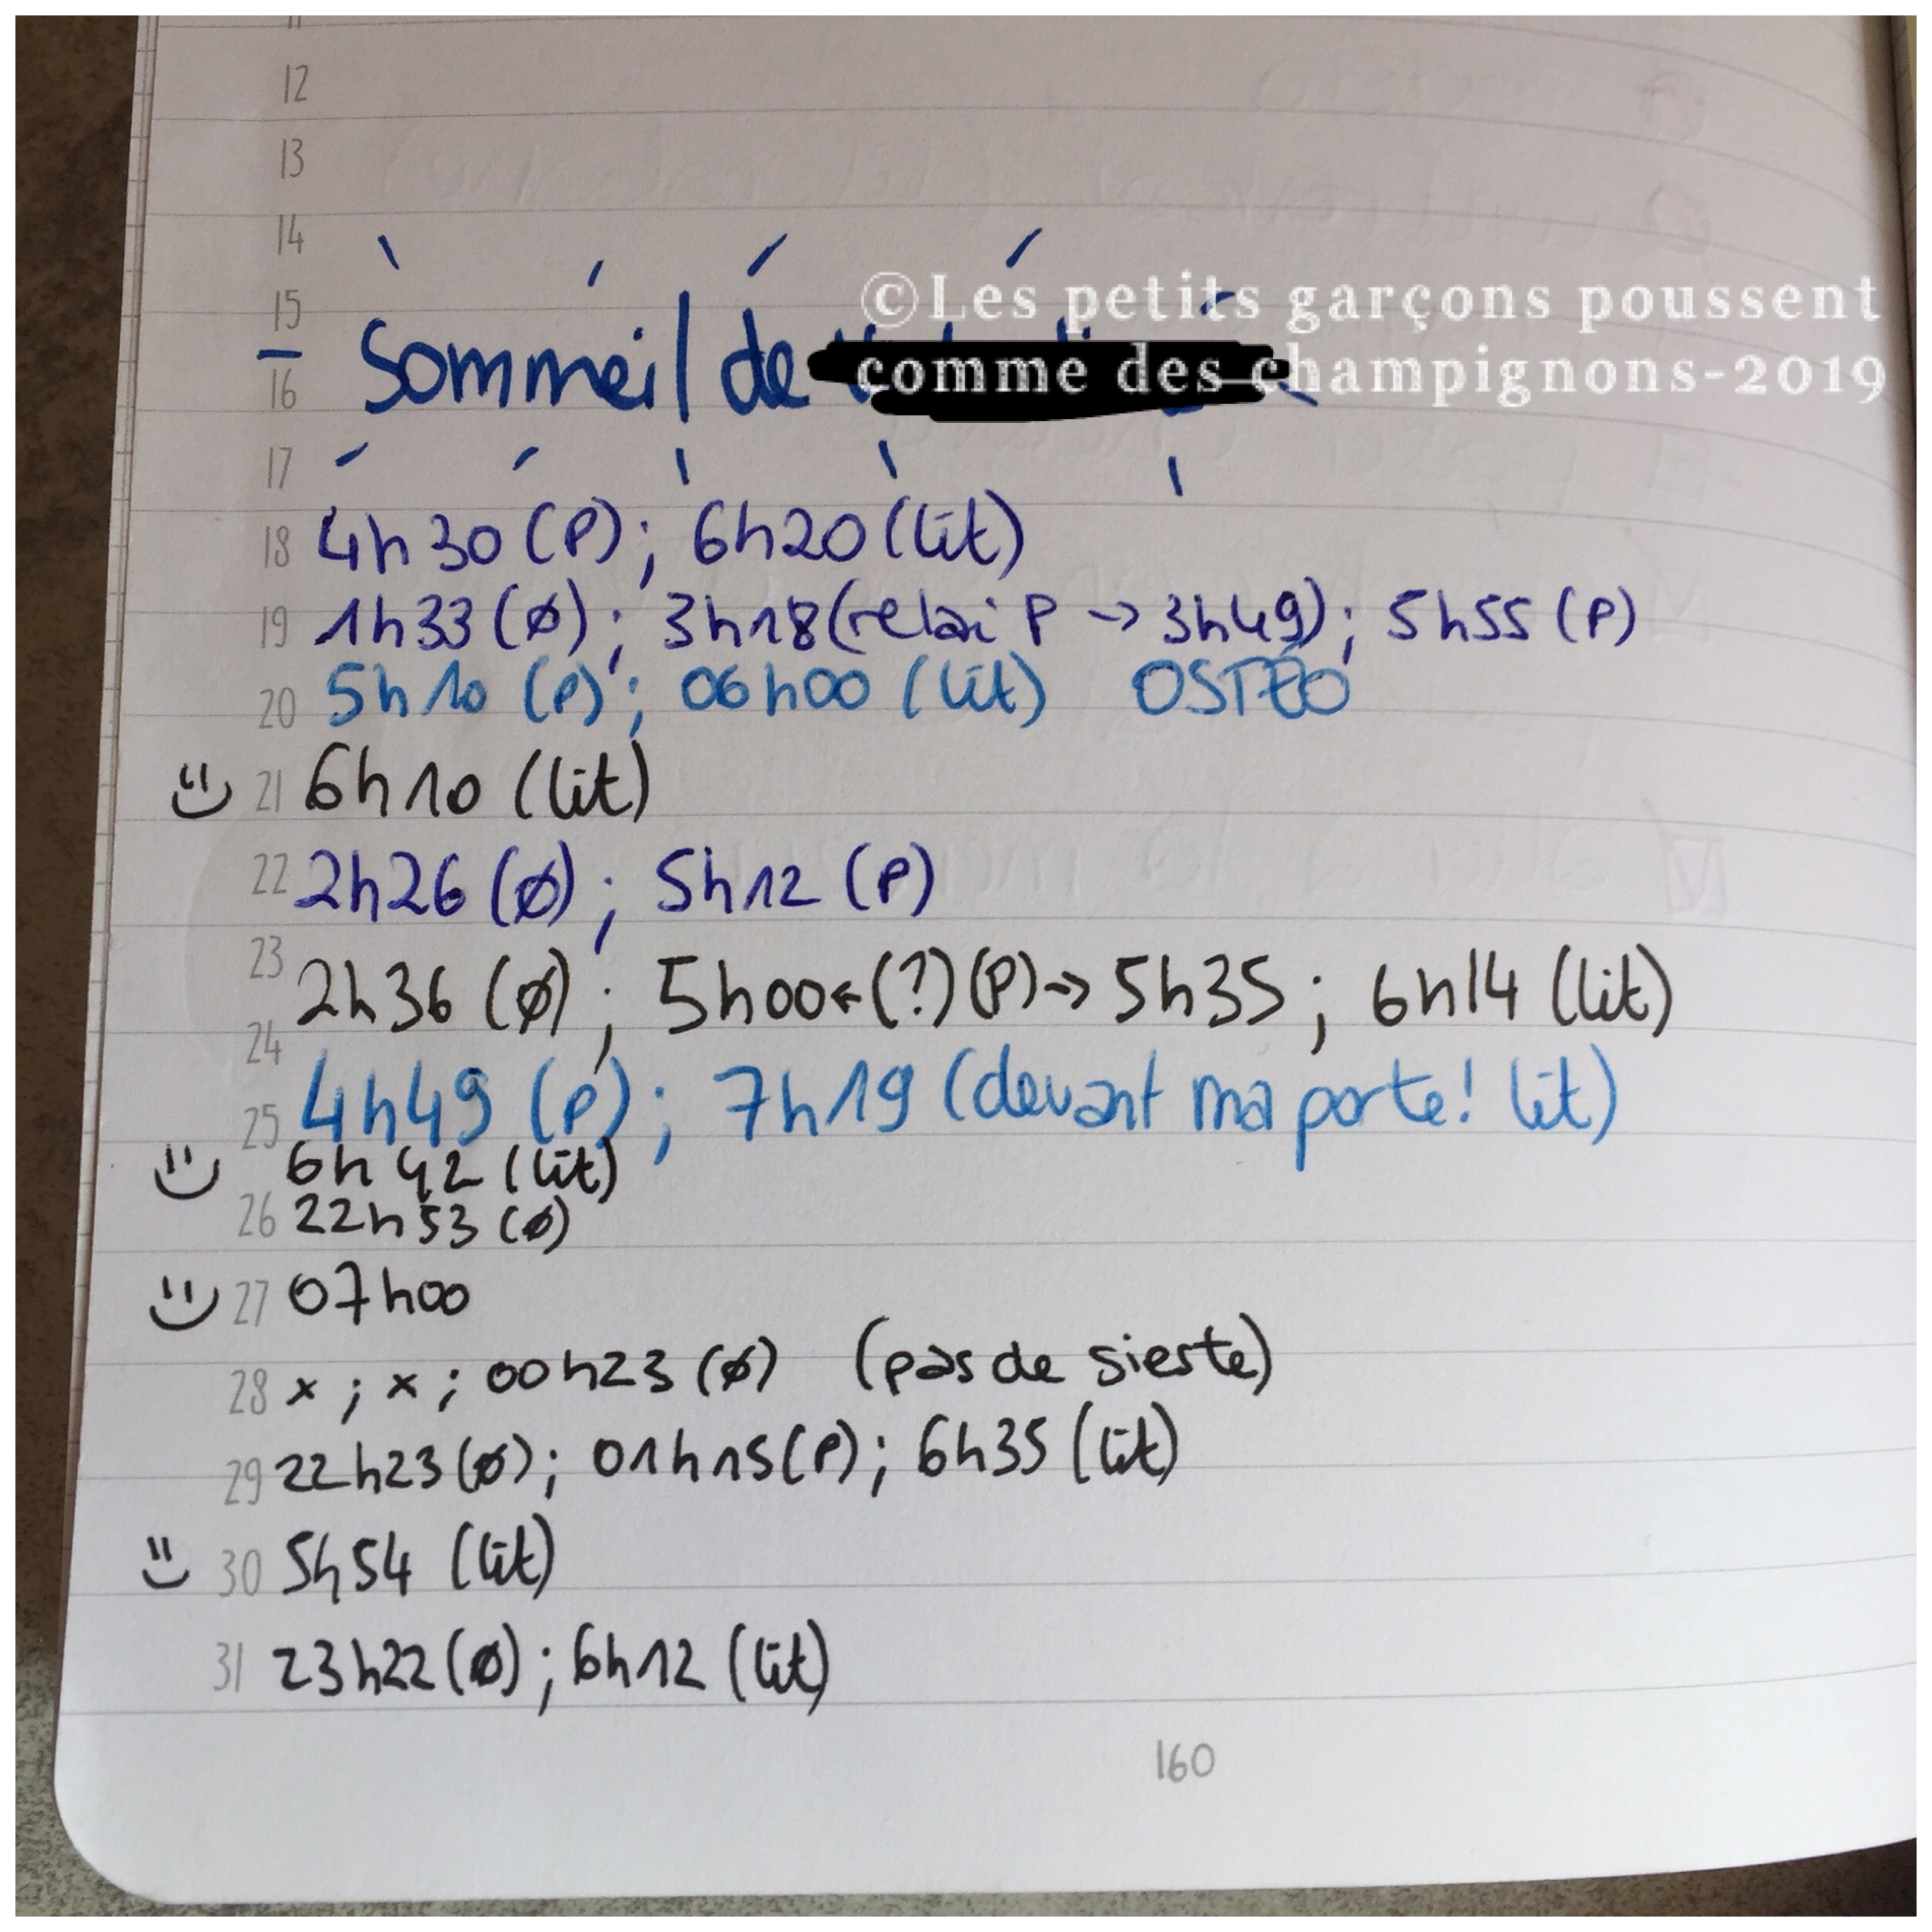 11
12
13
14
15
16
17
Sommeil de
©Les petits garçons poussent
comme des champignons-2019
18 4h30 (P) ; 6h20 (lit)
19 1h33 (ø) ; 3h18 (relai P -> 3h49) ; 5h55 (P)
20 5h10 (P) ; 06h00 (lit) OSTÉO
21 6h10 (lit)
22 2h26 (ø) ; 5h12 (P)
23 2h36 (ø) ; 5h00 <- (?) (P) -> 5h35 ; 6h14 (lit)
24 4h49 (P) ; 7h19 (devant ma porte! lit)
25 6h42 (lit)
26 22h53 (ø)
27 07h00
28 x ; x ; 00h23 (ø) (pas de sieste)
29 22h23 (ø) ; 01h15 (P) ; 6h35 (lit)
30 5h54 (lit)
31 23h22 (ø) ; 6h12 (lit)
160